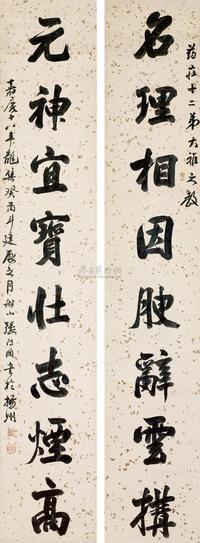 葯莊十二弟大雅之教
名理相因腴辭雲搆
元神宜寶壯志煙高
嘉慶十八年龍集癸酉斗建辰之月船山張問陶書於揚州